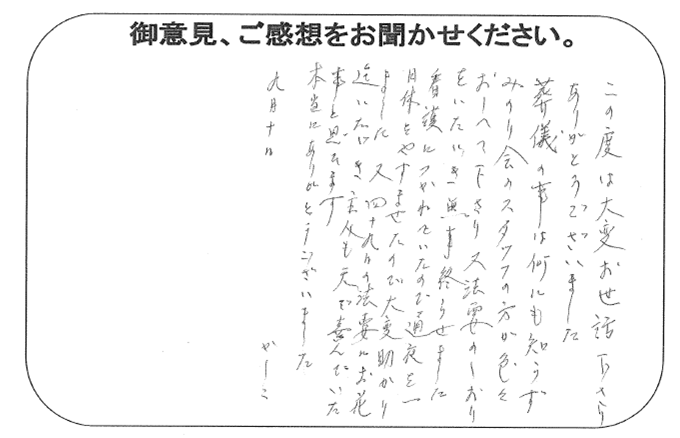 御意見、ご感想をお聞かせください。
この度は大変お世話下さり
ありがとうございました
葬儀の事は何にも知らず
みのり会のスタッフの方が色々
おしへて下さり又法要のしおり
をいただき無事終らせました
看護につかれていたので通夜を一
日休をやすませたので大変助かり
ました 又四十九日の法要にお花
迄いただき主人も天で喜んでいた
事と思います
本当にありがとうございました
九月十日